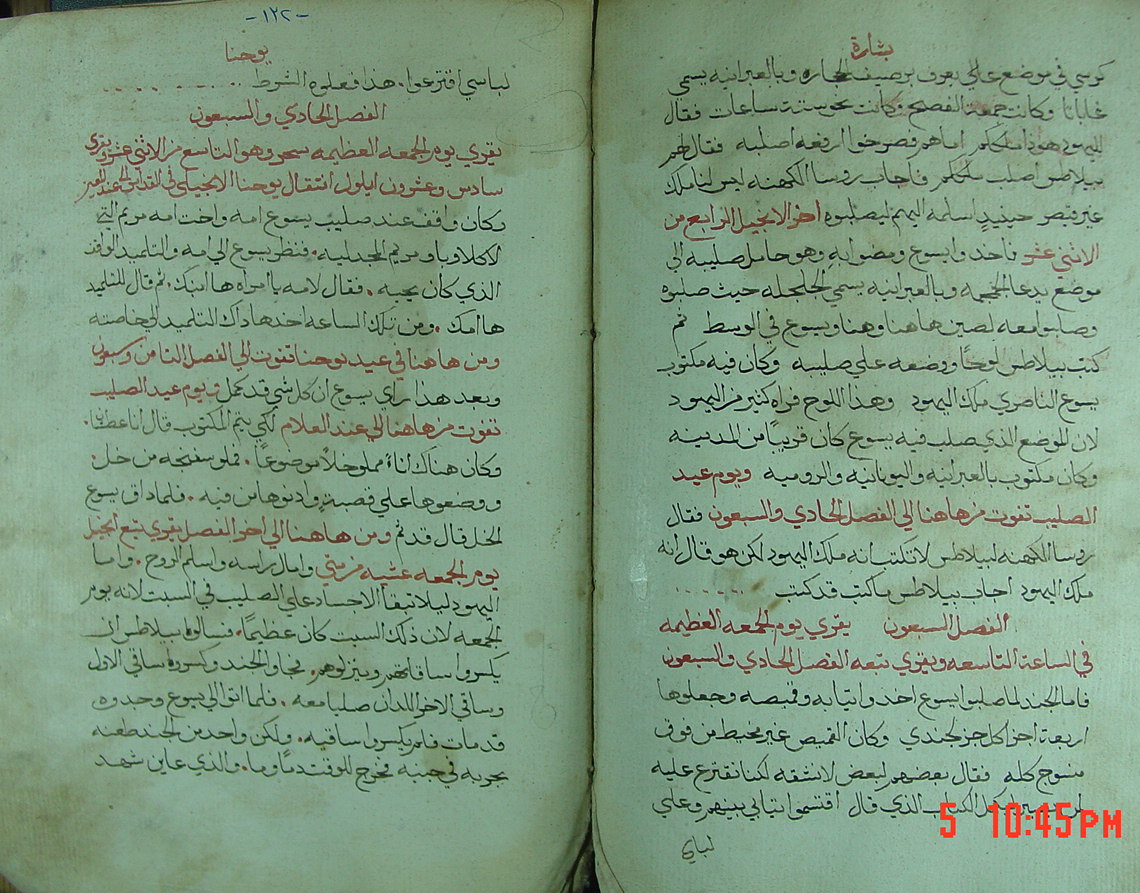 بشارة
كرسي في موضع عالي يعرف برصيف الحجاره وبالعبرانيه يسمى
غاباثا وكانت جمعة الفصح وكانت نحو ستت ساعات فقال
لليهود هودا ملككم اما هم فصرخوا ارفعه اصلبه فقال لهم
بيلاطس اصلب ملككم فاجاب روسا الكهنه ليس لنا ملك
غير قيصر حينيدٍ اسلمه اليهم ليصلبوه اخر الانجيل الرابع من
الاثني عشر فاخدوا يسوع ومضوا به وهو حامل صليبه الي
موضع يدعا الجمجمه وبالعبرانيه يسمي الجلجله حيث صلبوه
وصلبوا معه لصين هاهنا وهنا ويسوع في الوسط ثم
كتب بيلاطس لوحًا ووضعه علي صليبه وكان فيه مكتوب
يسوع الناصري ملك اليهود وهدا اللوح قراه كثير من اليهود
لان الموضع الذي صلب فيه يسوع كان قريبًا من المدينه
وكان مكتوب بالعبرانيه واليونانيه والروميه ويوم عيد
الصليب تفوت من هاهنا الي الفصل الحادي والسبعون فقال
روسا الكهنه لبيلاطس لا تكتب انه ملك اليهود لكن هو قال انه
ملك اليهود اجاب بيلاطس ما كتبت قد كتبت
الفصل السبعون يقري يوم الجمعه العظيمه
في الساعة التاسعه ويقري تبعه الفصل الحادي والسبعون
فاما الجند لما صلبوا يسوع اخدوا تيابه وقميصه وجعلوها
اربعة اجزا لكل جز لجندي وكان القميص غير مخيط من فوق
منسوج كله فقال بعضهم لبعض لا نشقه لكنا نقترع عليه
لمن يصير ليكمل الكتاب الذي قال اقتسموا تيابي بينهم وعلي
لباسي
-١٢٢-
يوحنا
لباسي اقترعوا. هذا فعلوه الشرط
الفصل الحادي والسبعون
يقري يوم الجمعه العظيمه سحر وهو التاسع من الاثني عشر ويقري
سادس وعشرون ايلول انتقال يوحنا الانجيلي في القداس
وكان واقف عند صليب يسوع امه واخت امه مريم التي
لاكلاوبا ومريم المجدليه. فنظر يسوع الي امه والتلميد الواقف
الذي كان يحبه. فقال لامه يا امراه ها ابنك. ثم قال للتلميد
ها امك. ومن تلك الساعه اخدها داك التلميد الي خاصته
ومن هاهنا في عيد يوحنا تفوت الي الفصل الثامن وسبعون
وبعد هذا راي يسوع ان كل شي قد كمل ويوم عيد الصليب
تفوت من هاهنا الي عند العلام لكي يتم المكتوب قال انا عطشان.
وكان هناك اناءً مملو خلاً موضوعًا. فملو سفنجه من خل.
ووضعوها علي قصبةٍ وادنوها من فيه. فلما داق يسوع
الخل قال قد تم ومن هاهنا الي اخر الفصل يقري تبع انجيل
يوم الجمعه عشيه من متي وامال راسه واسلم الروح. واما
اليهود ليلا تبقا الاجساد علي الصليب في السبت لانه يوم
الجمعه لان ذلك السبت كان عظيمًا. فسالوا بيلاطس ان
يكسروا ساقاتهم وينزلوهم. فجاو الجند وكسروا ساقي الاول
وساقي الاخر اللدان صلبا معه. فلما اتوا الي يسوع وجدوه
قد مات فلم يكسروا ساقيه. ولكن واحد من الجند طعنه
بحربه في جنبه فخرج للوقت دمًا وما. والذي عاين شهد
5 10:45PM